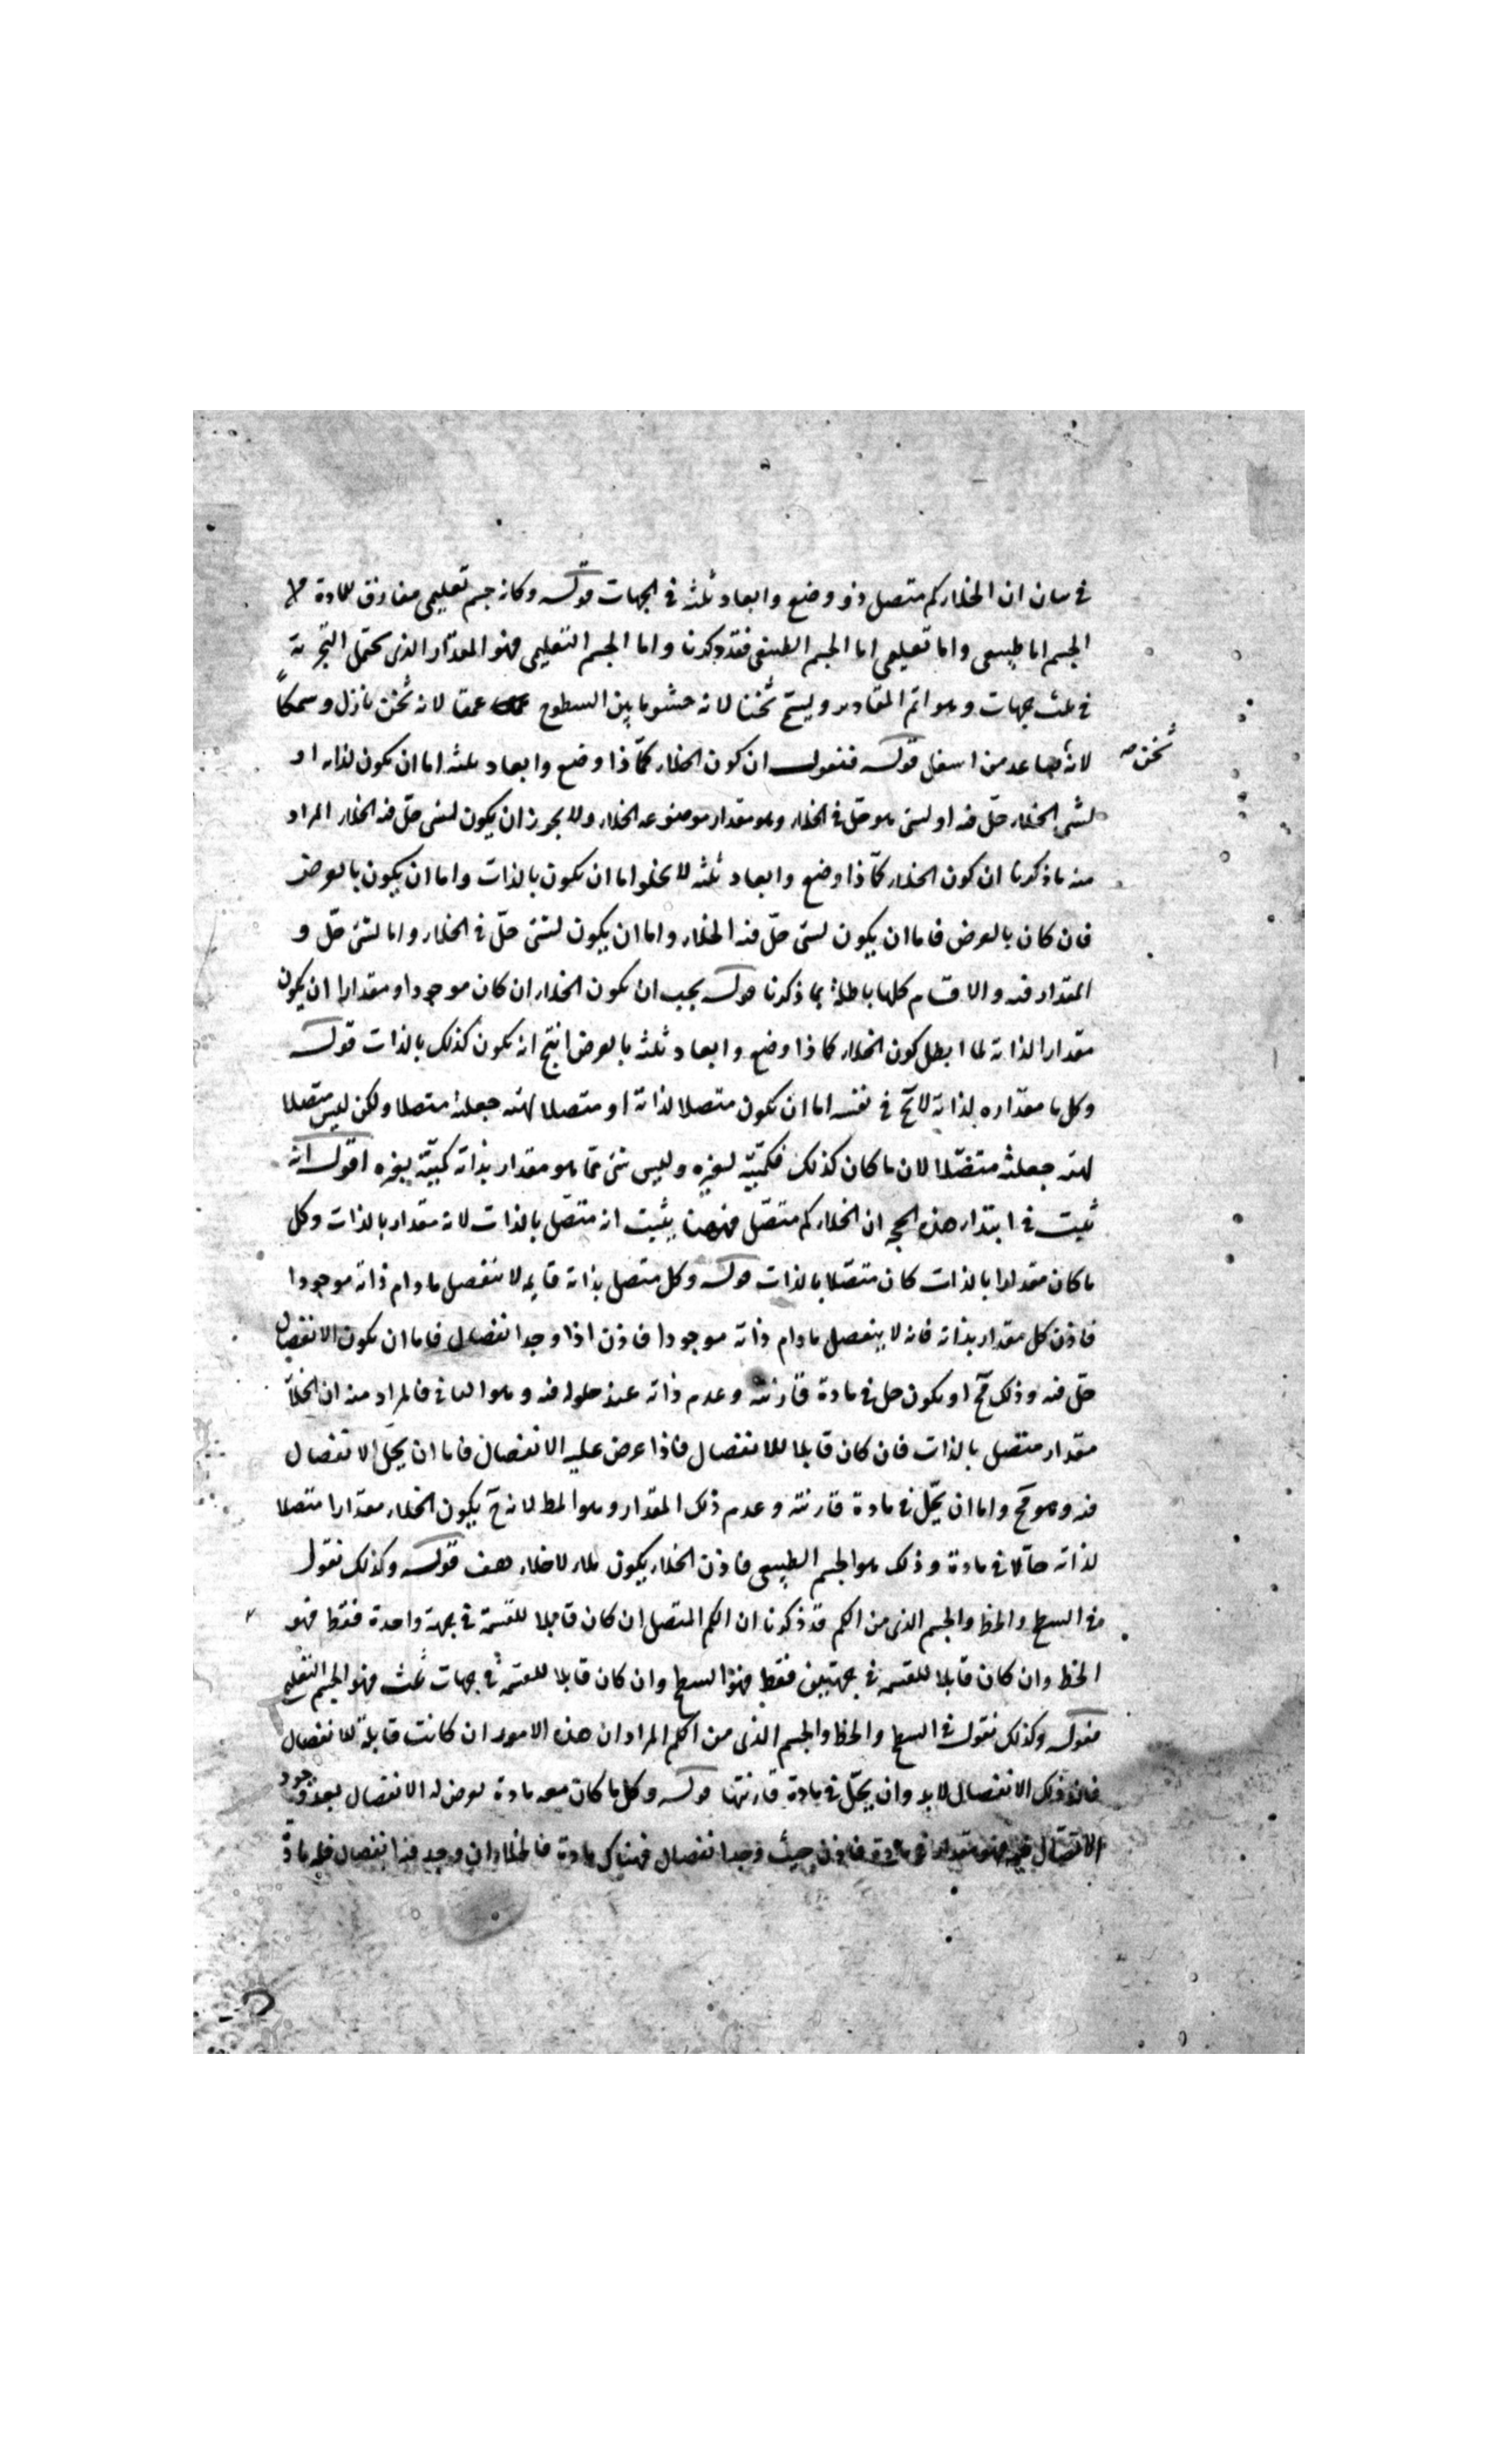 في بيان ان الخلاء كم متصل ذو وضع وابعاد ثلثة في الجهات قوله وكانه جسم تعليمي مفارق للمادة
الجسم اما طبيعي واما تعليمي اما الجسم الطبيعي فقد ذكرنا واما الجسم التعليمي فهو المقدار الذي يحتمل التجزية
في ثلث جهات وهو اتم المقادير ويسمى ثخنا لانه حشو ما بين السطوح عمقا لانه ثخن نازل وسمكاً
لانه صاعد من اسفل قوله فنقول ان كون الخلاء كمّا ذا وضع وابعاد ثلثه اما ان يكون لذاته او
ثخن صح
لشئ الخلاء حلّ فيه او لشئ هو حلّ في الخلاء وهو مقدار موضوعه الخلاء ولا يجوز ان يكون لشئ حلّ فيه الخلاء المراد
منه ما ذكرنا ان كون الخلاء كمّا ذا وضع وابعاد ثلثه لا يخلو اما ان يكون بالذات واما ان يكون بالعرض
فان كان بالعرض فاما ان يكون لشئ حلّ فيه الخلاء واما ان يكون لشئ حلّ في الخلاء واما لشئ حلّ و
المقدار فيه والاقسام كلها باطلة بما ذكرنا قوله يجب ان يكون الخلاء ان كان موجودا ومقدارا ان يكون
مقدارا لذاته لما ابطل كون الخلاء كما ذا وضع وابعاد ثلثه بالعرض انتج انه يكون كذلك بالذات قوله
وكل ما مقداره لذاته لا يخ في نفسه اما ان يكون متصلا لذاته او متصلا لهيئة جعلته متصلا ولكن ليس متصلا
لهيئه جعلته متصّلا لان ما كان كذلك فكميّته لغيره وليس شئ مما هو مقدار بذاته كميّته لغيره اقول انه
ثبت في ابتداء هذه الحجه ان الخلاء كم متصّل فههنا يثبت انه متصّل بالذات لانه مقدار بالذات وكل
ما كان مقدارا بالذات كان متصّلا بالذات قوله وكل متصل بذاته فانه لا ينفصل ما دام ذاته موجودا
فاذن كل مقدار بذاته فانه لا ينفصل ما دام ذاته موجودا فاذن اذا وجد انفصال فاما ان يكون الانفصال
حلّ فيه وذلك مح او يكون حل في مادة قارنته وعدم ذاته عند حلوله فيه وهو الباقي فالمراد منه ان الخلآ
مقدار متصّل بالذات فان كان قابلا للانفصال فاذا عرض عليه الانفصال فاما ان يحلّ الانفصال
فيه وهو مح واما ان يحّل في مادة قارنته وعدم ذلك المقدار وهو المط لانه ح يكون الخلاء مقدارا متصلا
لذاته حالّا في مادة وذلك هو الجسم الطبيعي فاذن الخلاء يكون ملاء لا خلاء هف قوله وكذلك نقول
في السطح والخط والجسم الذي من الكم قد ذكرنا ان الكم المتصل ان كان قابلا للقسمة في جهة واحدة فقط فهو
الخط وان كان قابلا للقسمه في جهتين فقط فهو السطح وان كان قابلا للقسمة في جهات ثلث فهو الجسم التعليمي
فقوله وكذلك نقول في السطح والخط والجسم الذي من الكم المراد ان هذه الامور ان كانت قابلة للانفصال
فان ذلك الانفصال لا بد وان يحّل في مادة قارنتها قوله وكل ما كان معه مادة يعرض له الانفصال بعد وجود
الاتصال فيه فهو مقدار في مادة فاذن حيث وجد انفصال فهناك مادة فالخلاء ان وجد فيه انفصال فله مادة